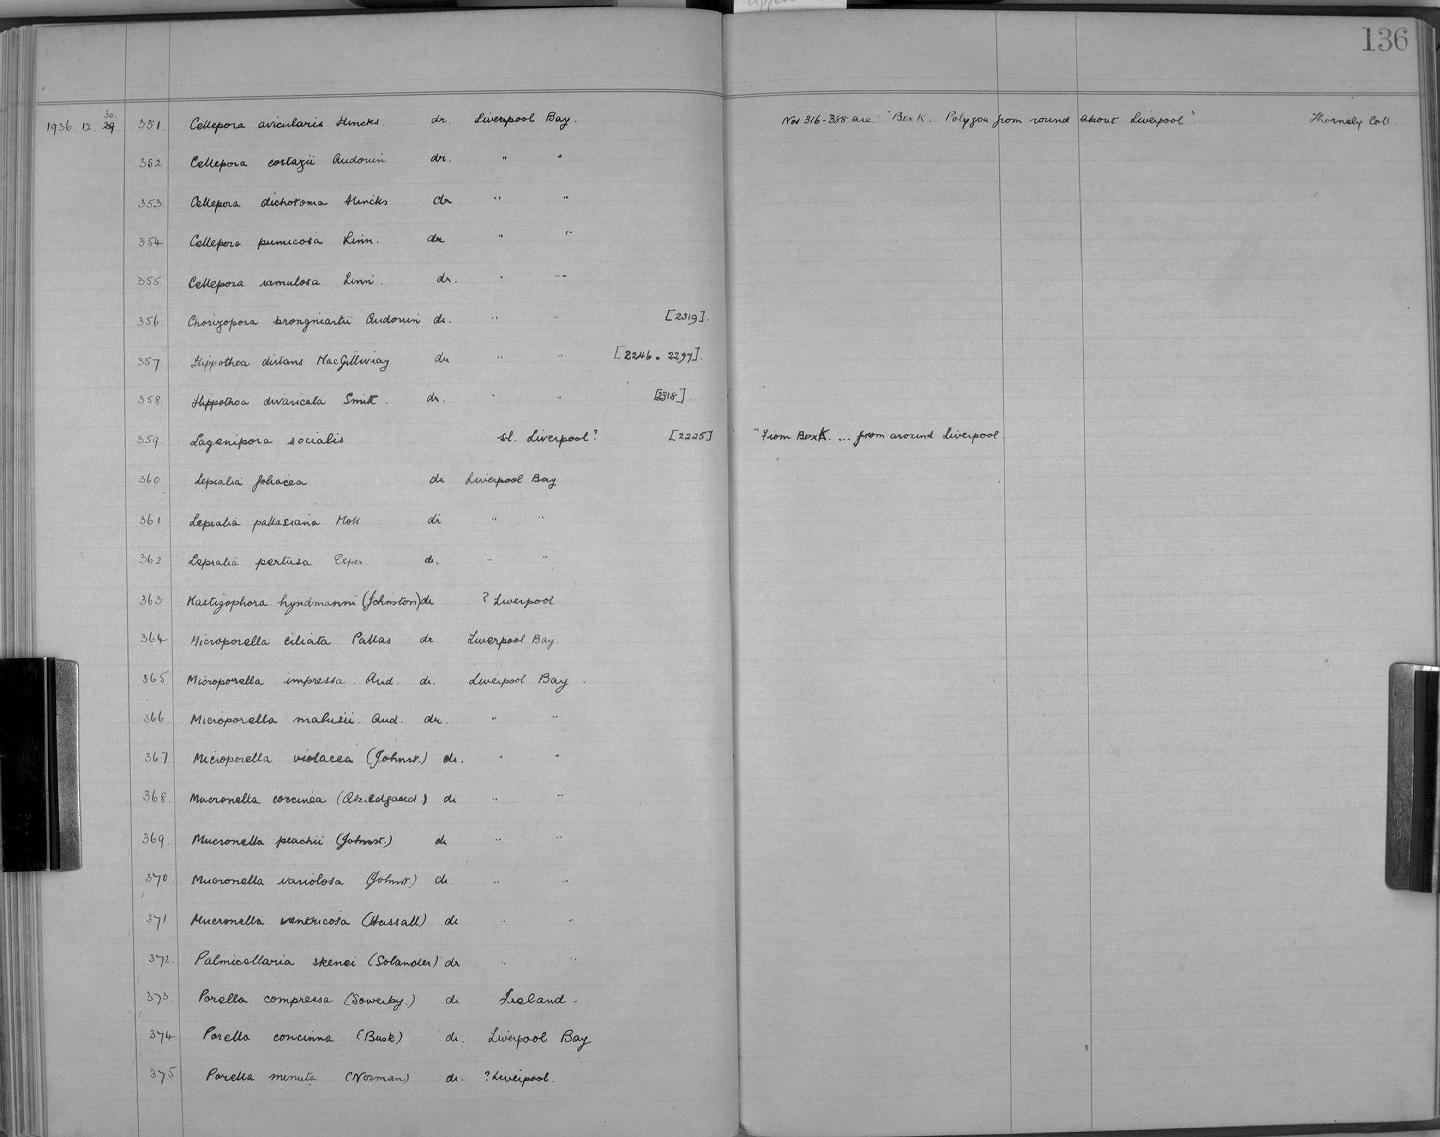 136
1936. 12. 30. 29. 351. Cellepora avicularis Hincks. dr. Liverpool Bay. Nos 316-388 are: "Box K. Polyzoa from round about Liverpool". Thornely Coll.
352 Cellepora costazii Audouin dr. " "
353. Cellepora dichotoma Hincks dr " "
354 Cellepora pumicosa Linn. dr " "
355 Cellepora ramulosa Linn. dr. " "
356. Chorizopora brongniartii Audouin dr. " " [2319].
357 Hippothoa distans MacGillivray dr " " [2246 . 2297].
358. Hippothoa divaricata Smitt. dr. " " [2318].
359. Lagenipora socialis sl. Liverpool? [2225] "From Box K. ... from around Liverpool
360 Lepralia foliacea dr Liverpool Bay
361 Lepralia pallasiana Moll dr " "
362 Lepralia pertusa Esper dr. " "
363 Mastigophora hyndmanni (Johnston) dr ? Liverpool
364 Microporella ciliata Pallas dr Liverpool Bay
365 Microporella impressa. Aud. dr. Liverpool Bay.
366. Microporella malusii. Aud. dr. " "
367 Microporella violacea (Johnst.) dr. " "
368. Mucronella coccinea (Abildgaard) dr " "
369. Mucronella peachii (Johnst.) dr " "
370. Mucronella variolosa (Johnst.) dr. " "
371. Mucronella ventricosa (Hassall) dr " "
372. Palmicellaria skenei (Solander) dr " "
373. Porella compressa (Sowerby.) dr Ireland -
374 Porella concinna (Busk) dr. Liverpool Bay
375 Porella minuta (Norman) dr. ? Liverpool.